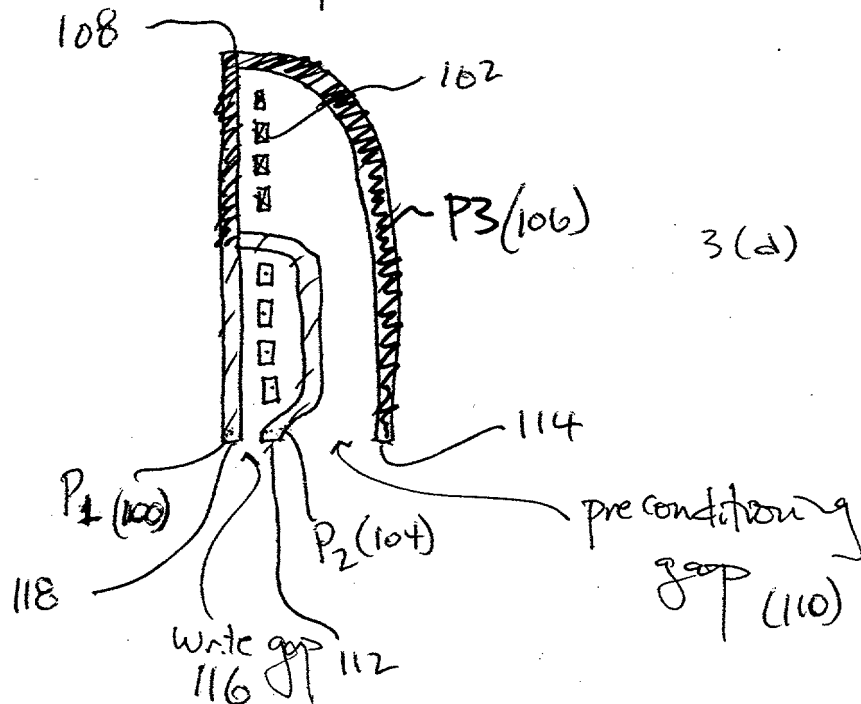 108
102
P3 (106)
3(d)
114
P1 (100)
P2 (104)
preconditioning
gap (110)
118
write gap
116
112